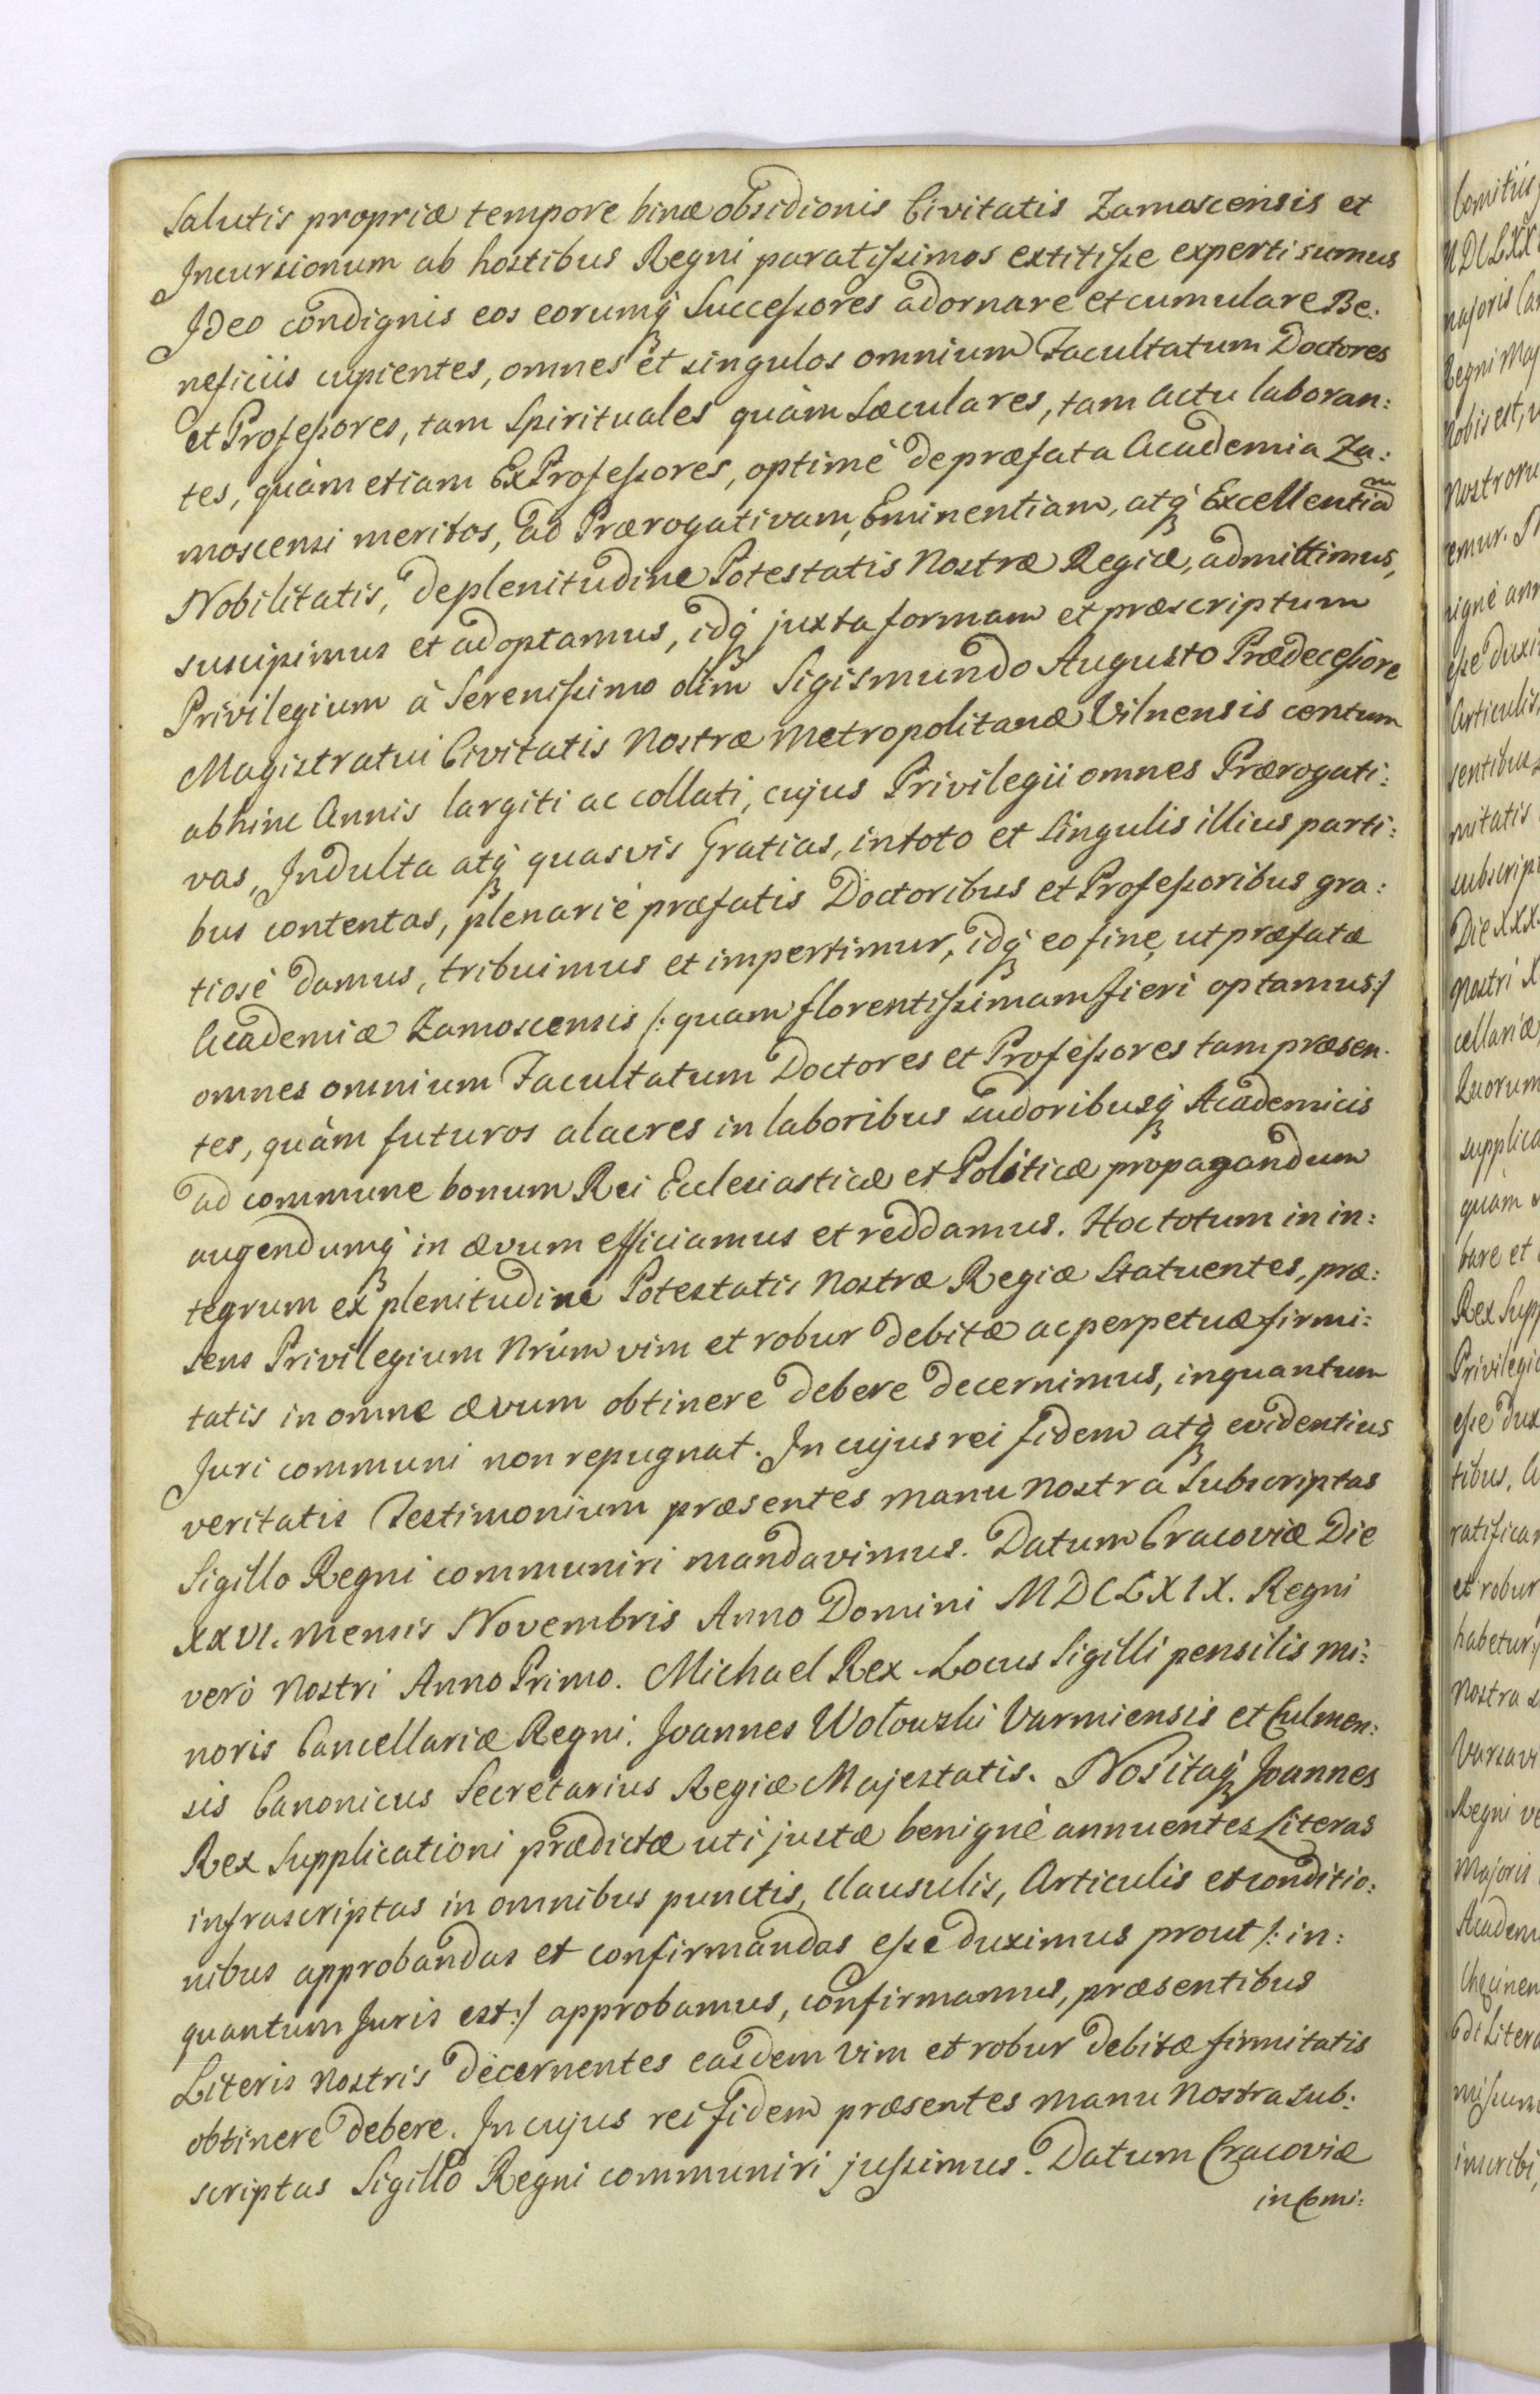 Salutis propriæ tempore binæ obsidionis Civitatis Zamoscensis et
Incursionum ab hostibus Regni paratissimos extitisse experti sumus
Ideo condignis eos eorumq́ Successores adornare et cumulare Be:
neficiis cupientes, omnes et singulos omnium Facultatum Doctores
et Professores, tam Spirituales quàm Sæculares, tam actu laboran:
tes, quàm etiam ExProfessores, optimè de præfata Academia Za:
moscensi meritos, ad Prærogativam, Eminentiam, atq́ Excellentiam
Nobilitatis, de plenitudine Potestatis Nostræ Regiæ, admittimus,
suscipimus et adoptamus, idq́ juxta formam et præscriptum
Privilegium à Serenissimo olim Sigismundo Augusto Prædecessore
Magistratui Civitatis Nostræ Metropolitanæ Vilnensis centum
abhinc Annis largiti ac collati, cujus Privilegii omnes Prærogati:
vas, Indulta atq́ quasvis Gratias, in toto et Singulis illius parti:
bus contentas, plenariè præfatis Doctoribus et Professoribus gra:
tiosè damus, tribuimus et impertimur, idq́ eo fine, ut præfatæ
Academiæ Zamoscensis /: quam florentissimam fieri optamus:/
omnes omnium Facultatum Doctores et Professores tam præsen:
tes, quàm futuros alacres in laboribus sudoribusq́ Academicis
ad commune bonum Rei Ecclesiasticæ et Politicæ propagandum
augendumq́ in ævum efficiamus et reddamus. Hoc totum in in:
tegrum ex plenitudine Potestatis Nostræ Regiæ Statuentes, præ:
sens Privilegium Nrúm vim et robur debitæ ac perpetuæ firmi:
tatis in omne ævum obtinere debere decernimus, inquantum
Juri communi non repugnat. In cujus rei fidem atq́ evidentius
veritatis Testimonium præsentes manu Nostra Subscriptas
Sigillo Regni communiri mandavimus. Datum Cracoviæ Die
XXVI. Mensis Novembris Anno Domini MDCLXIX. Regni
verò Nostri Anno Primo. Michael Rex. Locus Sigilli pensilis mi:
noris Cancellariæ Regni. Joannes Wołowski Varmiensis et Culmen:
sis Canonicus Secretarius Regiæ Majestatis. Nos itaq́ Joannes
Rex Supplicationi prædictæ uti justæ benignè annuentes Literas
infrascriptas in omnibus punctis, Clausulis, Articulis et conditio:
nibus approbandas et confirmandas esse duximus prout /: in:
quantum Juris est:/ approbamus, confirmamus, præsentibus
Literis Nostris decernentes easdem vim et robur debitæ firmitatis
obtinere debere. In cujus rei fidem præsentes manu Nostra sub:
scriptas Sigillo Regni communiri jussimus. Datum Cracoviæ
in Comi: